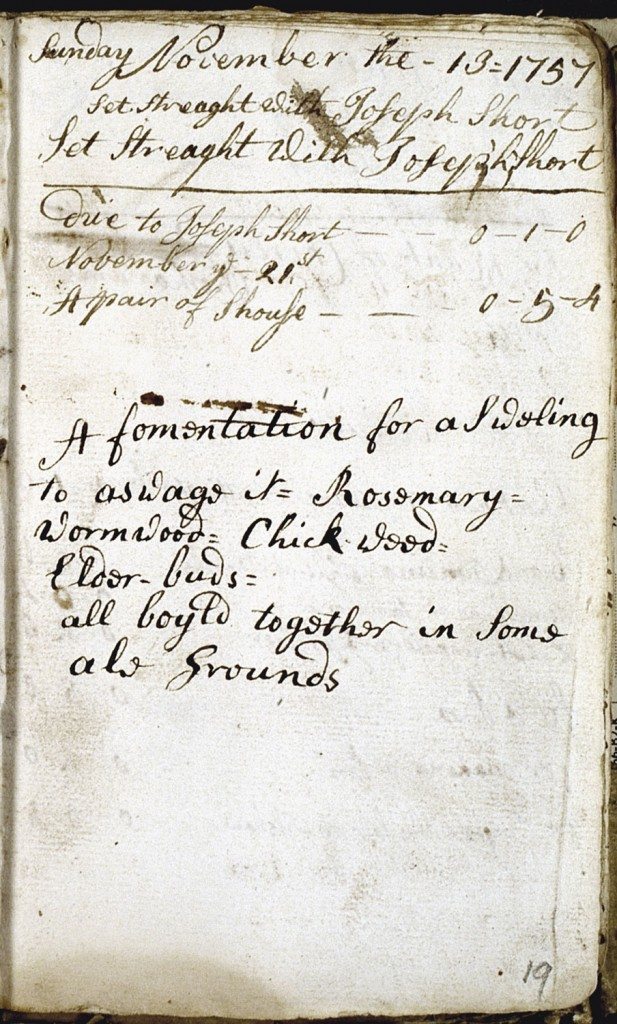 Sunday November the - 13=1757
Set streaght with Joseph Short
Set Streaght with Joseph Short
due to Joseph Short — - - 0-1-0
November ye - 21st
A pair of Shouse — — - 0-5-4
A fomentation for a Sweling
to aswage it= Rosemary=
wormwood= Chick weed=
Elder-buds=
all boyld together in Some
ale Grounds
19